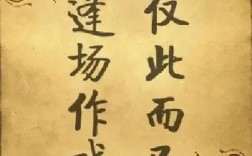 仅此而
逢场作